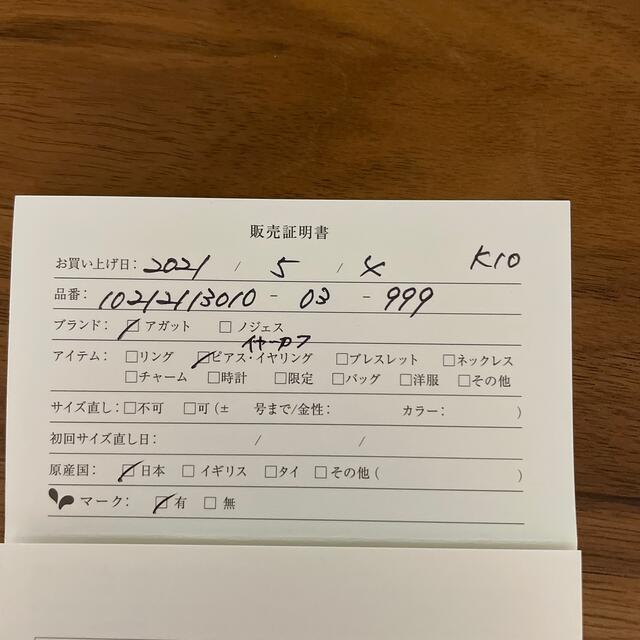 販売証明書
お買い上げ日: 2021 / 5 / 4 K10
品番: 10212113010 - 03 - 999
ブランド: ☑ アガット ☐ ノジェス
イヤーカフ
アイテム: ☐リング ☑ピアス・イヤリング ☐ブレスレット ☐ネックレス
☐チャーム ☐時計 ☐限定 ☐バッグ ☐洋服 ☐その他
サイズ直し: ☐不可 ☐可 (± 号まで/金性: カラー: )
初回サイズ直し日: / /
原産国: ☑日本 ☐イギリス ☐タイ ☐その他 ( )
マーク: ☑有 ☐無